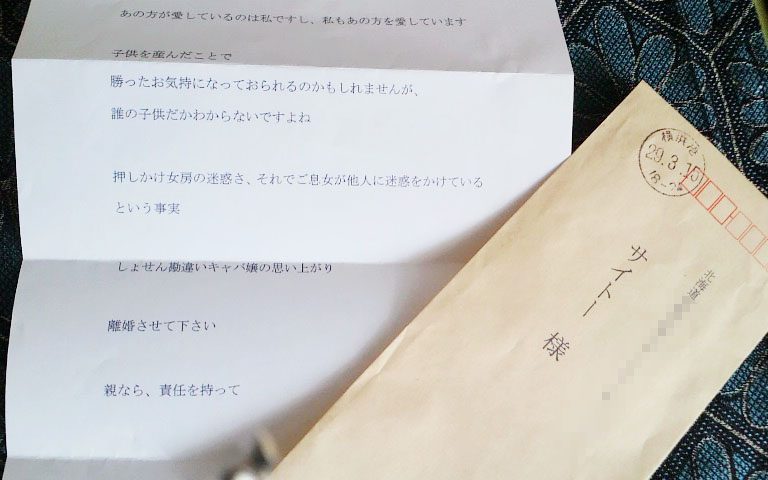 あの方が愛しているのは私ですし、私もあの方を愛しています
子供を産んだことで
勝ったお気持になっておられるのかもしれませんが、
誰の子供だかわからないですよね
押しかけ女房の迷惑さ、それでご息女が他人に迷惑をかけている
という事実
しょせん勘違いキャバ嬢の思い上がり
離婚させて下さい
親なら、責任を持って
横浜港
29.3.15
北海道
サイトー 様